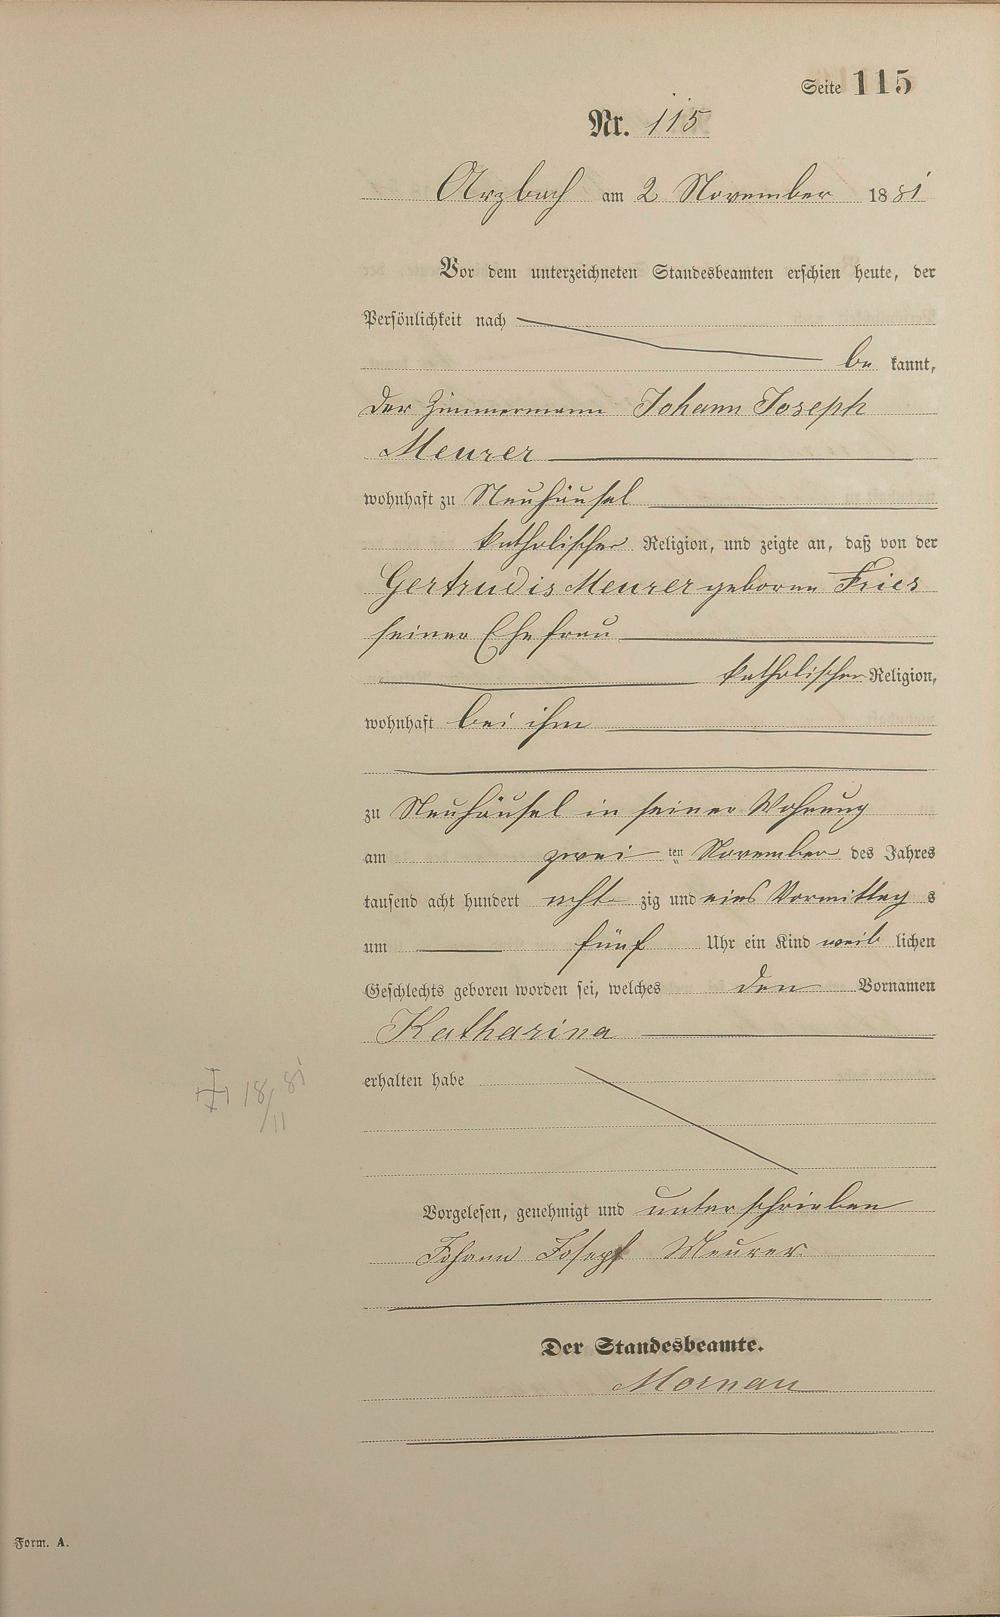 Seite 115
Nr. 115
Arzbach am 2 November 1881
Vor dem unterzeichneten Standesbeamten erschien heute, der
Persönlichkeit nach
be kannt,
der Zimmermann Johann Joseph
Meurer
wohnhaft zu Neuhäusel
katholischer Religion, und zeigte an, daß von der
Gertrudis Meurer geborne Fries
seiner Ehefrau
katholischer Religion,
wohnhaft bei ihm
zu Neuhäusel in seiner Wohnung
am zwei ten November des Jahres
tausend acht hundert acht zig und eins Vormittag s
um fünf Uhr ein Kind weib lichen
Geschlechts geboren worden sei, welches den Vornamen
Katharina
erhalten habe
18/11 81
Vorgelesen, genehmigt und unterschrieben
Johann Josepf Meurer
Der Standesbeamte.
Mornau
Form. A.